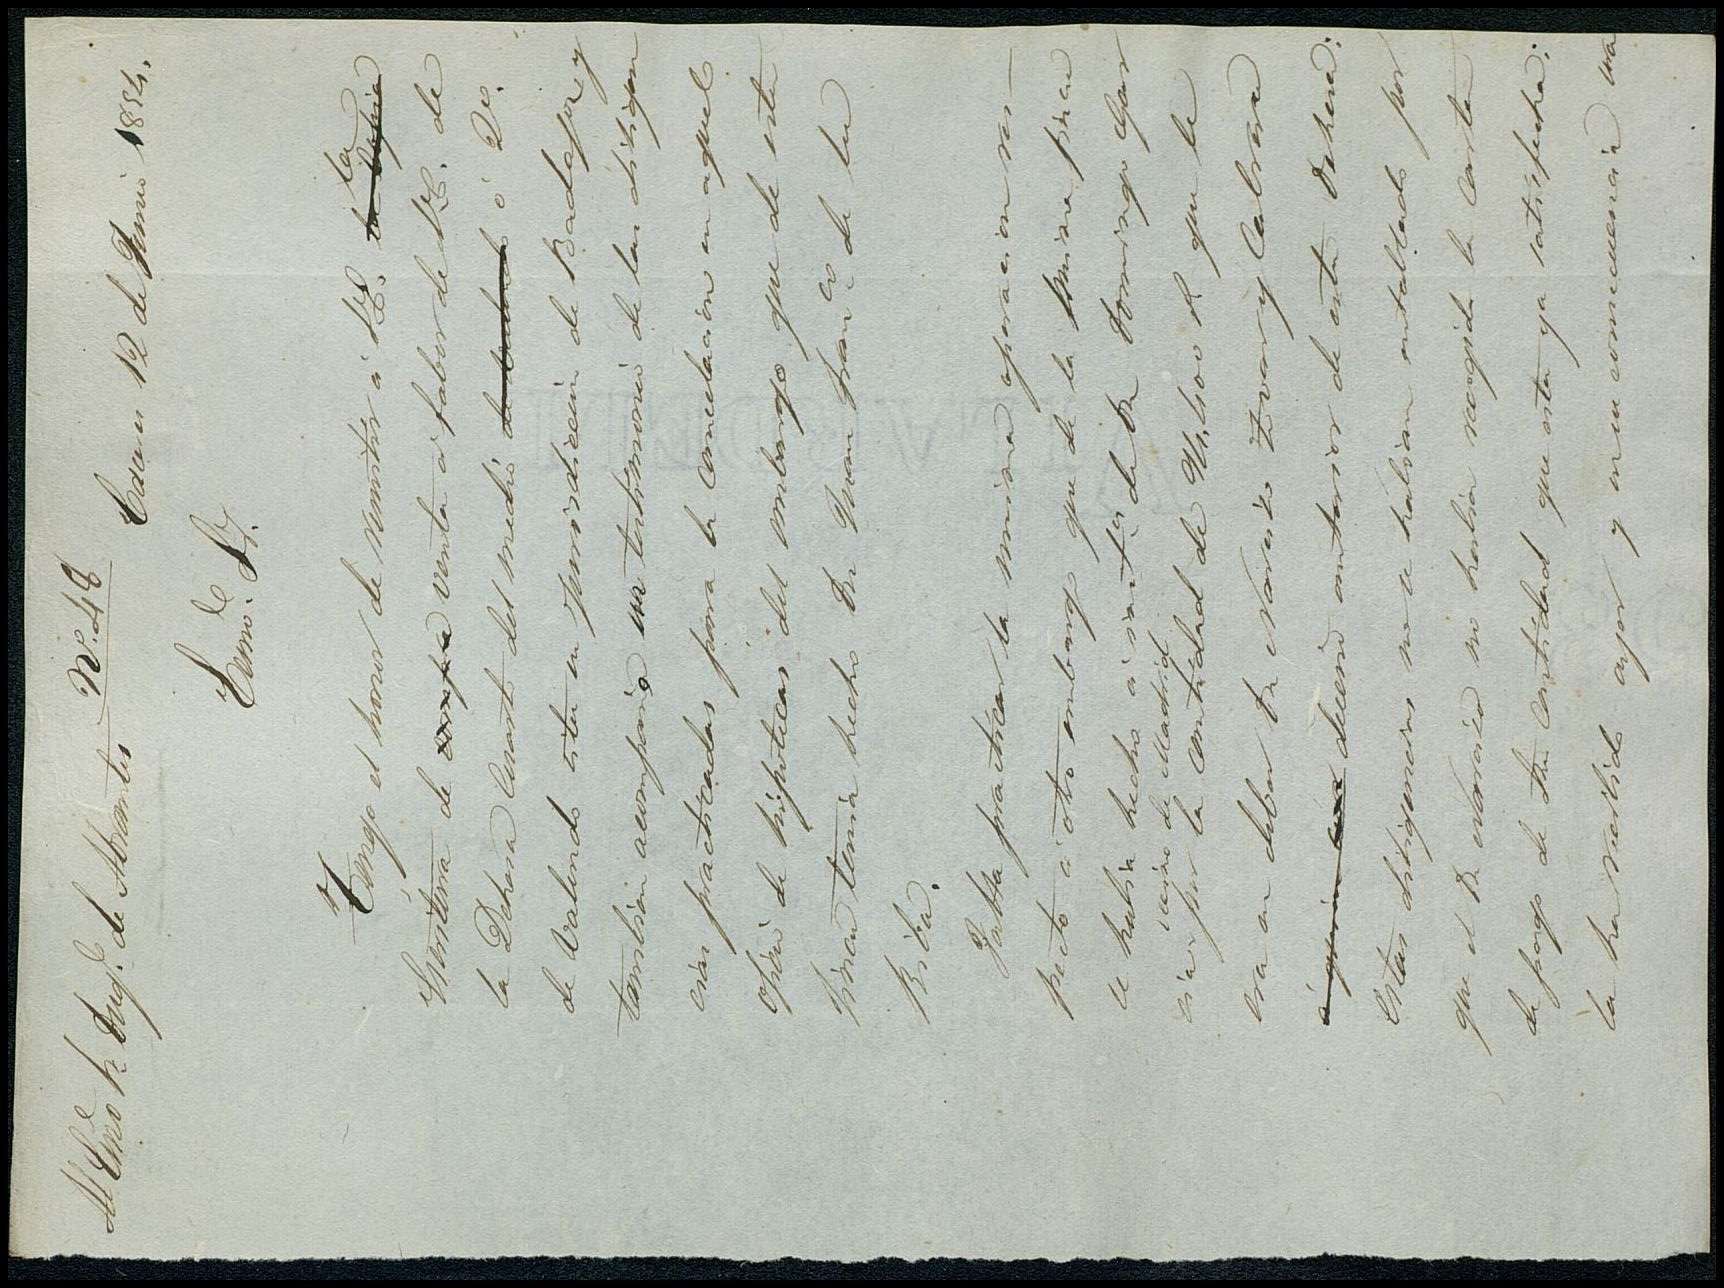 Al Exmo Sr. Duq.e de Abrantes Nº. 48
Caceres 12 de Junio 1884.
Exmo. Sr.
Tengo el honor de remitir a V.E. la copia la
escritura de compra venta a fabor de V.E. de
la Dehesa Cuarto del medio de enmedio ó Dos.
de Valondo sita en jurisdiccion de Badajoz y
tambien acompaño un testimonio de las diligen
cias practicadas para la cancelacion en aquel
oficio de hipotecas del embargo que de esta
finca tenia hecho Dn Juan Franco de la
Riba.
Falta practicar la misma operacion res-
pecto a otro embargo que de la misma finca
se habia hecho a instas de Dn Domingo Gar
cia vecino de Madrid por la cantidad de 41,600 R que le
era en deber Dn Nazario Tovar y Cabrera
a quien era dueño anterior de esta Dehesa:
Estas diligencias no se habian entablado por
que el Dn Nazario no habia recogido la Carta
de pago de dha Cantidad que esta ya satisfecha:
la ha recibido ayer y en su consecuencia va